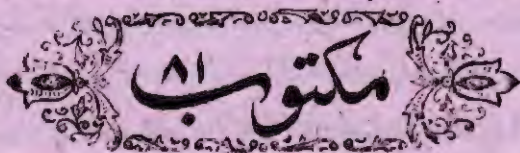 مکتوب ۸۱